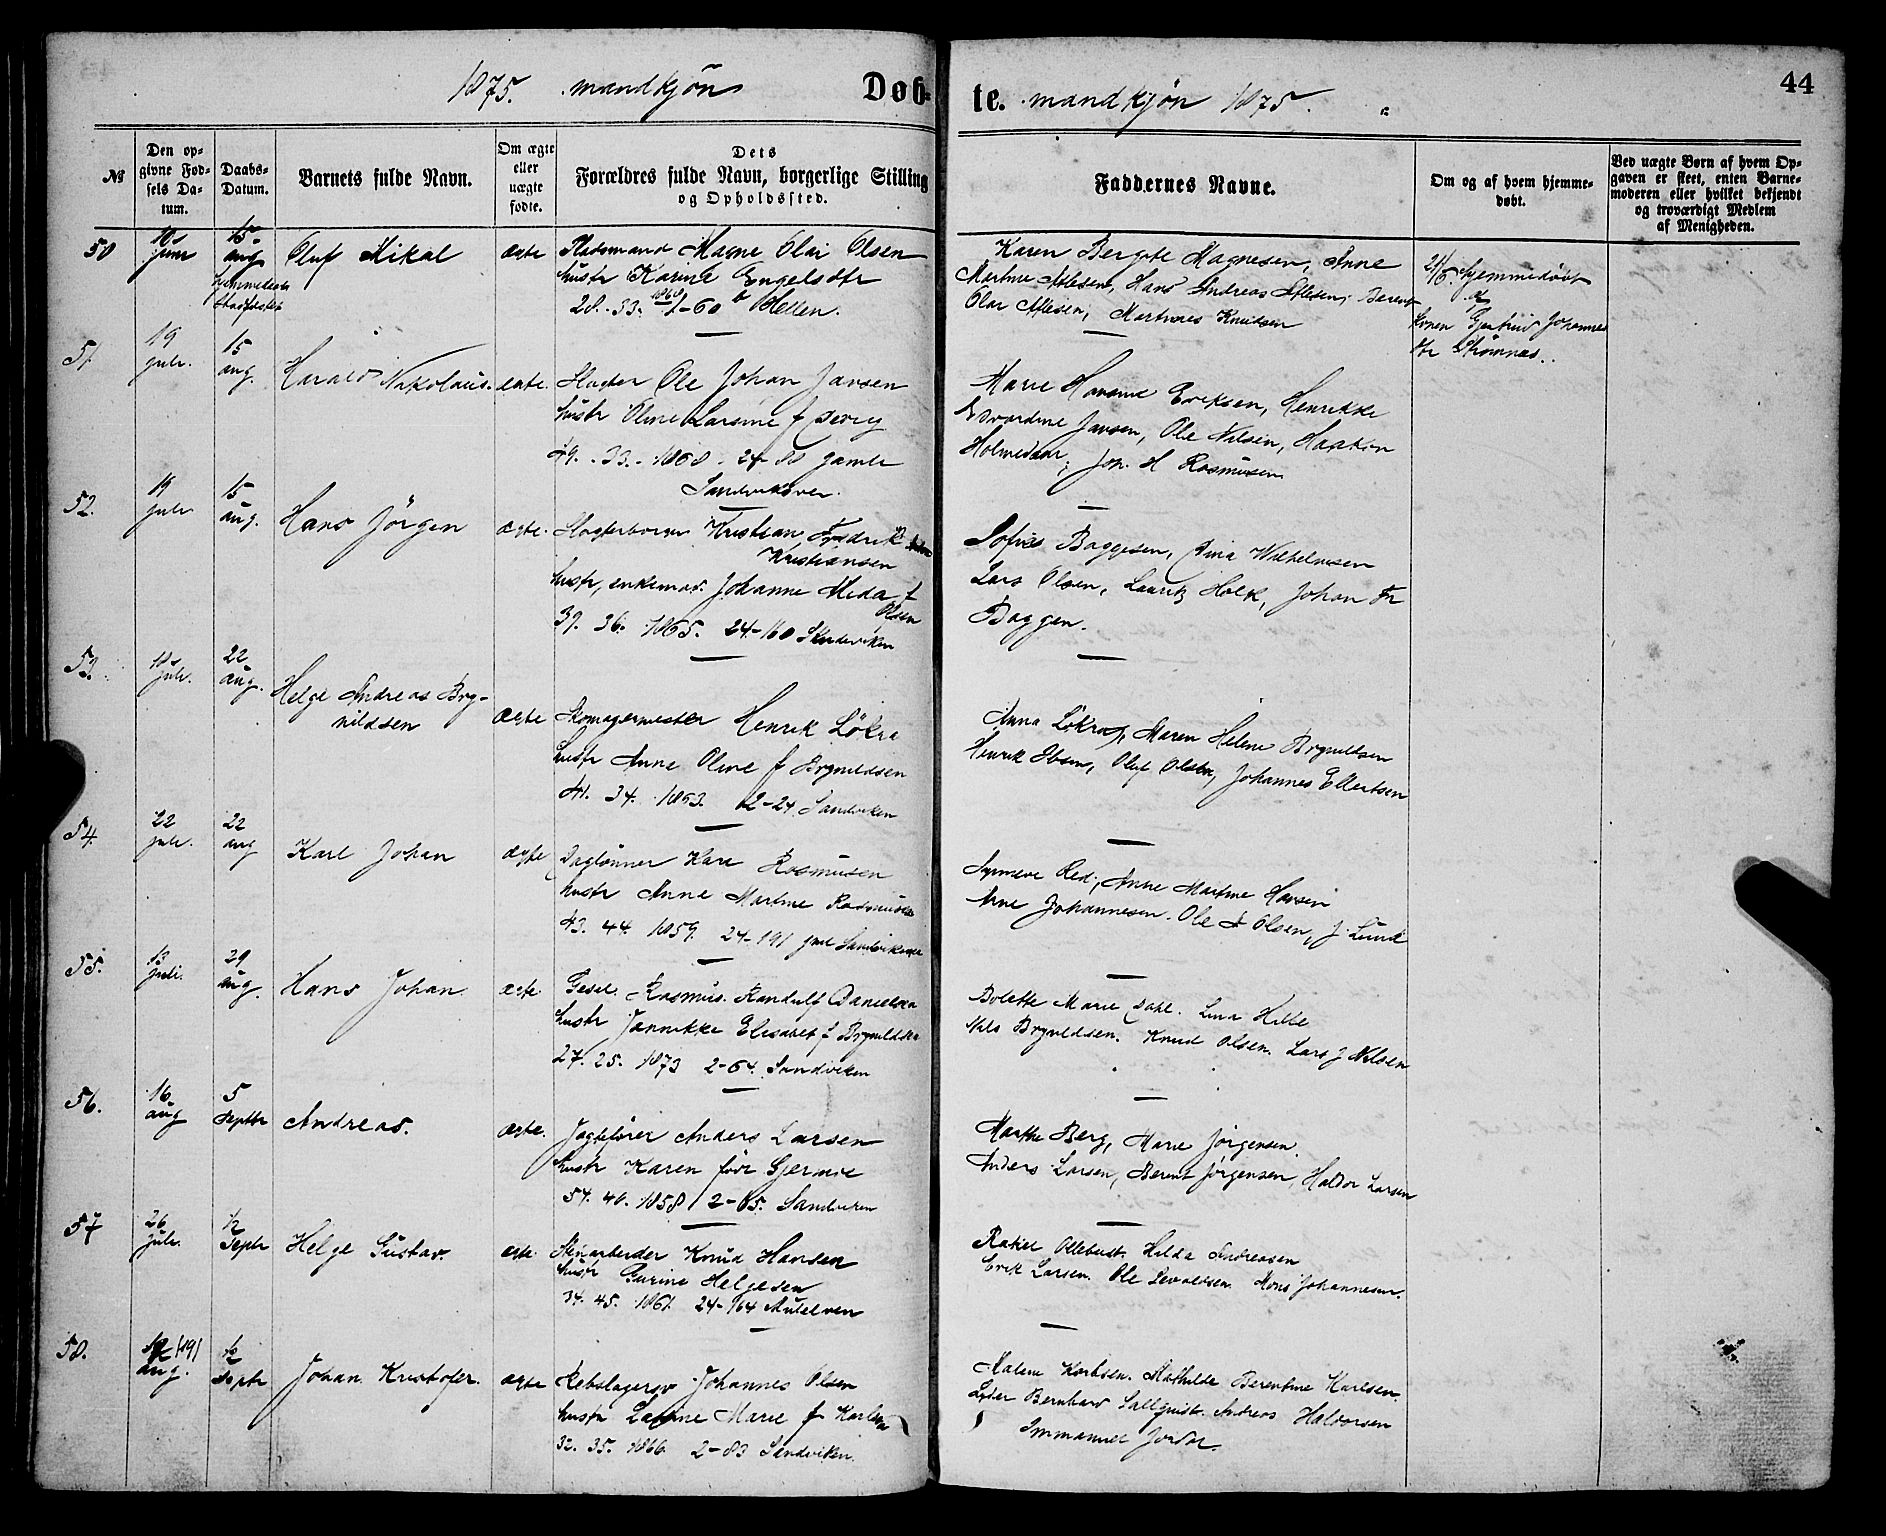 1875. mandkjön Døb-
te. mandkjøn 1875.
44
№
Den op-
givne Fød-
sels Da-
tum.
Daabs-
Datum.
Barnets fulde Navn.
Om ægte
eller
uægte
fødte.
Dets
Forældres fulde Navn, borgerlige Stilling
og Opholdssted.
Faddernes Navne.
Om og af hvem hjemme-
døbt.
Ved uægte Børn af hvem Op-
gaven er skeet, enten Barne-
moderen eller hvilket bekjendt
og troværdigt Medlem
af Menigheden.
50
juni
15
aug
Oluf Mikal
ægte
Pladsmand Magne Olai Olsen
hustr Karine Engelsdtr
28. 33. 1868 Hellen.
Karen Bergete Magnesen, Anne
Martine Atlesen, Hans Andreas Atlesen, Berent
Olai Atlesen, Martines Knudsen
hjemmedøbt
af
konen Gjertrud Johannes
dtr Strømnes.
51.
19
juli.
15
aug.
Harald Nikolaus.
ægte.
Slagter Ole Johan Jansen
hustr Oline Larsine f
49. 33. 1868. 24-88 gamle
Sandviksvei.
Marie Hansine Eriksen, Henrikke
Edvardine Jansen, Ole Nilsen, Haakon
Holmedaal, Joh. H Rasmusen
52.
19
juli
15
aug.
Hans Jörgen
ægte.
Slagterborger Kristian Fredrik
Kristiansen
hustr, enkemad. Johanne Meda f
Olsen
39. 36. 1865. 24-160 Sandviken
Sofie Baggesen, Lina Wilhelmsen
Lars Olsen, Lauritz Holck, Johan Fr
Baggen.
53.
18
juli.
22
aug.
Helge Andreas Bry-
nildsen
ægte
Skomagermester Henrik Lökra
hustr Anne Oline f Brynildsen
41. 34. 1863. 2-24 Sandviken
Anna Lökra, Maren Helene Brynildsen
Henrik Ibsen, Oluf Olsen, Johannes Ellertsen
54.
22
juli.
22
aug
Karl Johan
ægte
Daglönner Karl Rasmusen
hustr Anne Martine Rasmusen
43. 44. 1859. 24-191 gml Sandviksvei
Synneve Anne Martine Hansen
Arne Johannesen. Ole Olsen, J. Lund
55.
13
juli.
29
aug.
Hans Johan
ægte
Gesel. Rasmus Randulf Danielsen
hustr Jannikke Elisabet f Brynildsen
27. 25. 1873 2-64. Sandviken
Bolette Marie Dahl. Lina Hille
Nils Brynildsen. Knud Olsen. Lars J Nilsen
56.
16
aug
5
septbr
Andreas.
ægte.
Jagtefører Anders Larsen
hustr Karen född Gjermoe
54. 46. 1858 2-65. Sandviken
Marthe Berg, Marie Jörgensen.
Anders Larsen, Berent Jörgensen, Haldor Larsen
57
26
juli.
12
Septr
Helge Gustav.
ægte.
Stenarbeider Knud Hansen
hustr Gurine Helgesen
34. 45. 1861. 24-164 Mulelven
Rakel Ollebust. Hilda Andreasen
Erik Larsen. Ole Sevaldsen. Mons Johannesen.
58.
aug.
12
septr
Johan Kristofer.
ægte
Rebslagersv Johannes Olsen
hustr Larine Marie f Karlsen
32. 35. 1866. 2-83 Sandviken.
Malene Karlsen. Mathilde Berentine Karlsen.
Peder Bernhard Sallquist. Andreas Haldorsen
Immanuel Jordal.